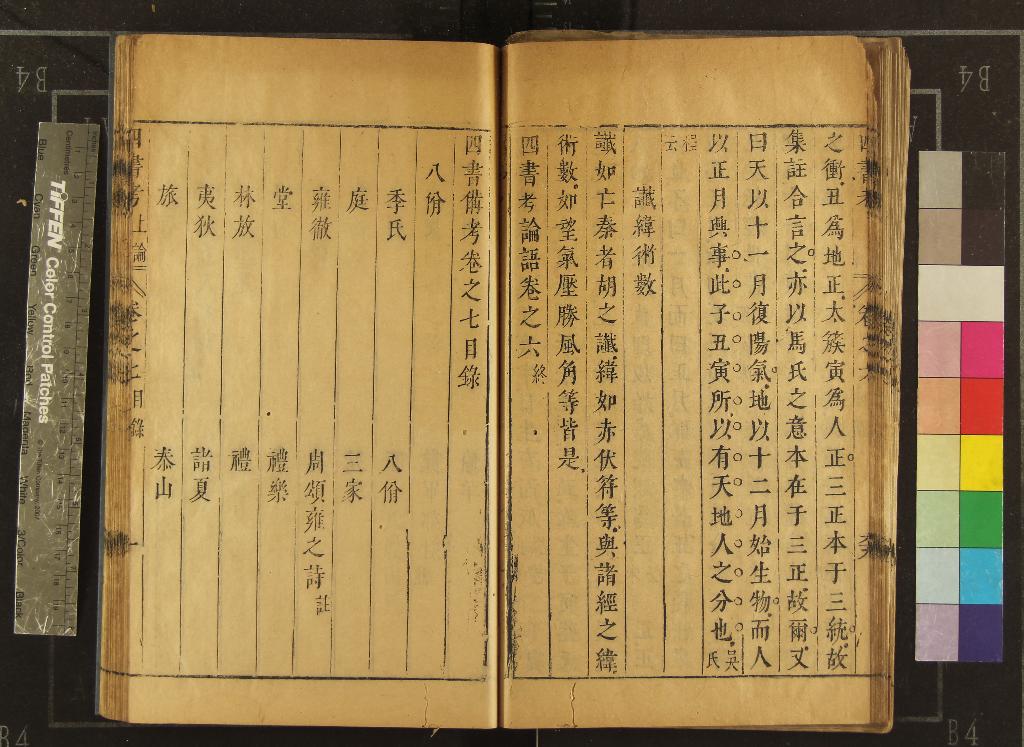 之衝丑爲地正太簇寅爲人正三正本于三統故
集註合言之亦以馬氏之意本在于三正故爾又
曰天以十一月復陽氣地以十二月始生物而人
以正月興事此子丑寅所以有天地人之分也吳氏
程云
讖緯術數
讖如亡秦者胡之讖緯如赤伏符等與諸經之緯
術數如望氣壓勝風角等皆是
四書考論語卷之六終
四書備考卷之七目錄
八佾
季氏 八佾
庭 三家
雍徹 周頌雍之詩註
堂 禮樂
林放 禮
夷狄 諸夏
旅 泰山
四書考上論 卷之七目錄 一
TIFFEN Color Control Patches
Centimetres
Blue
Cyan
Green
Yellow
Red
Magenta
White
3/Color
Black
B4
B4
B4
B4